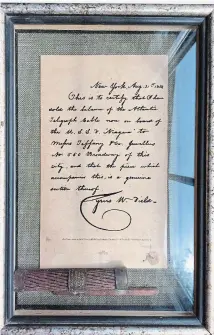 New York, Aug. 21st 1858
This is to certify that I have
sold the balance of the Atlantic
Telegraph Cable now on board of
the U. S. S. F. "Niagara" to
Messrs Tiffany &Co. Jewellers
No 550 Broadway of this
city, and that the piece which
accompanies this is a genuine
section thereof.
Cyrus W. Field.